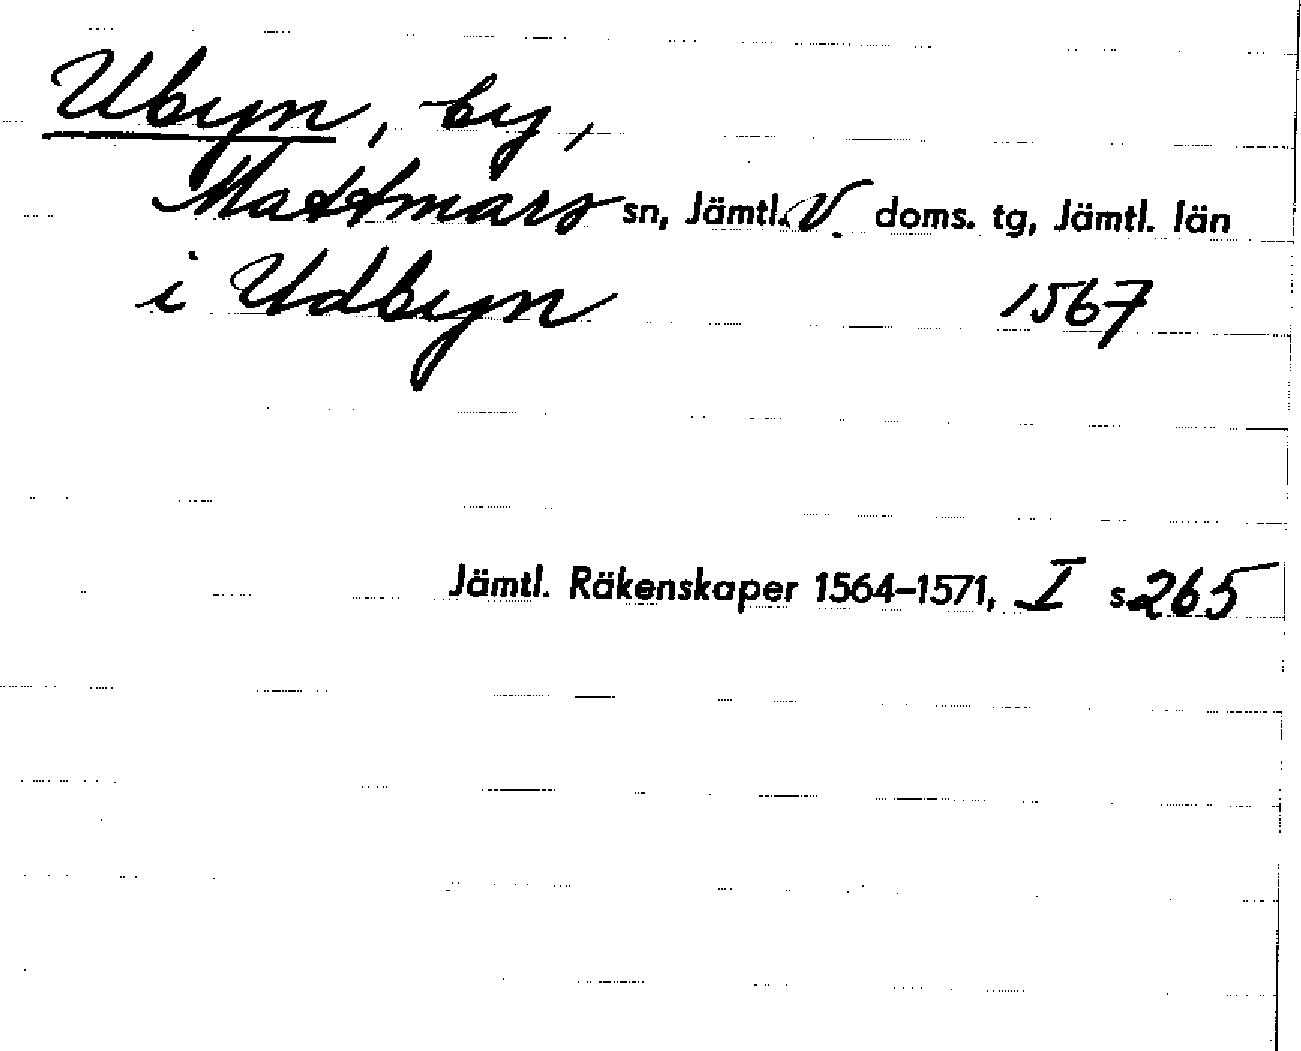 Ubyn, by,
Mattmars sn, Jämtl. V. doms. tg, Jämtl. län
i Udbyn 1567
Jämtl. Räkenskaper 1564–1571, I s. 265